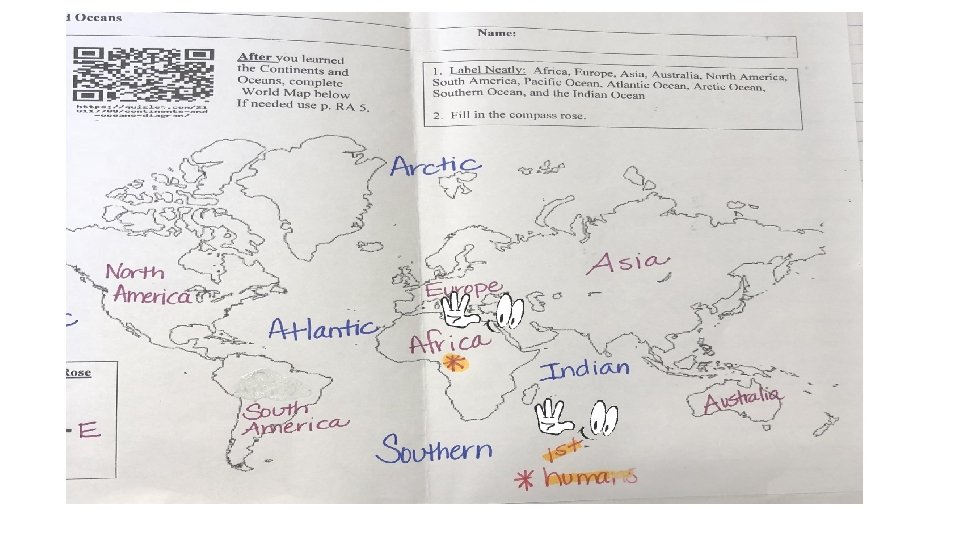 d Oceans
Name:
After you learned
the Continents and
Oceans, complete
World Map below
If needed use p. RA 5.
1. Label Neatly: Africa, Europe, Asia, Australia, North America,
South America, Pacific Ocean, Atlantic Ocean, Arctic Ocean,
Southern Ocean, and the Indian Ocean
2. Fill in the compass rose.
Arctic
North
America
Europe
Asia
Atlantic
Africa
*
Indian
Rose
E
South
America
Australia
Southern
1st
* humans